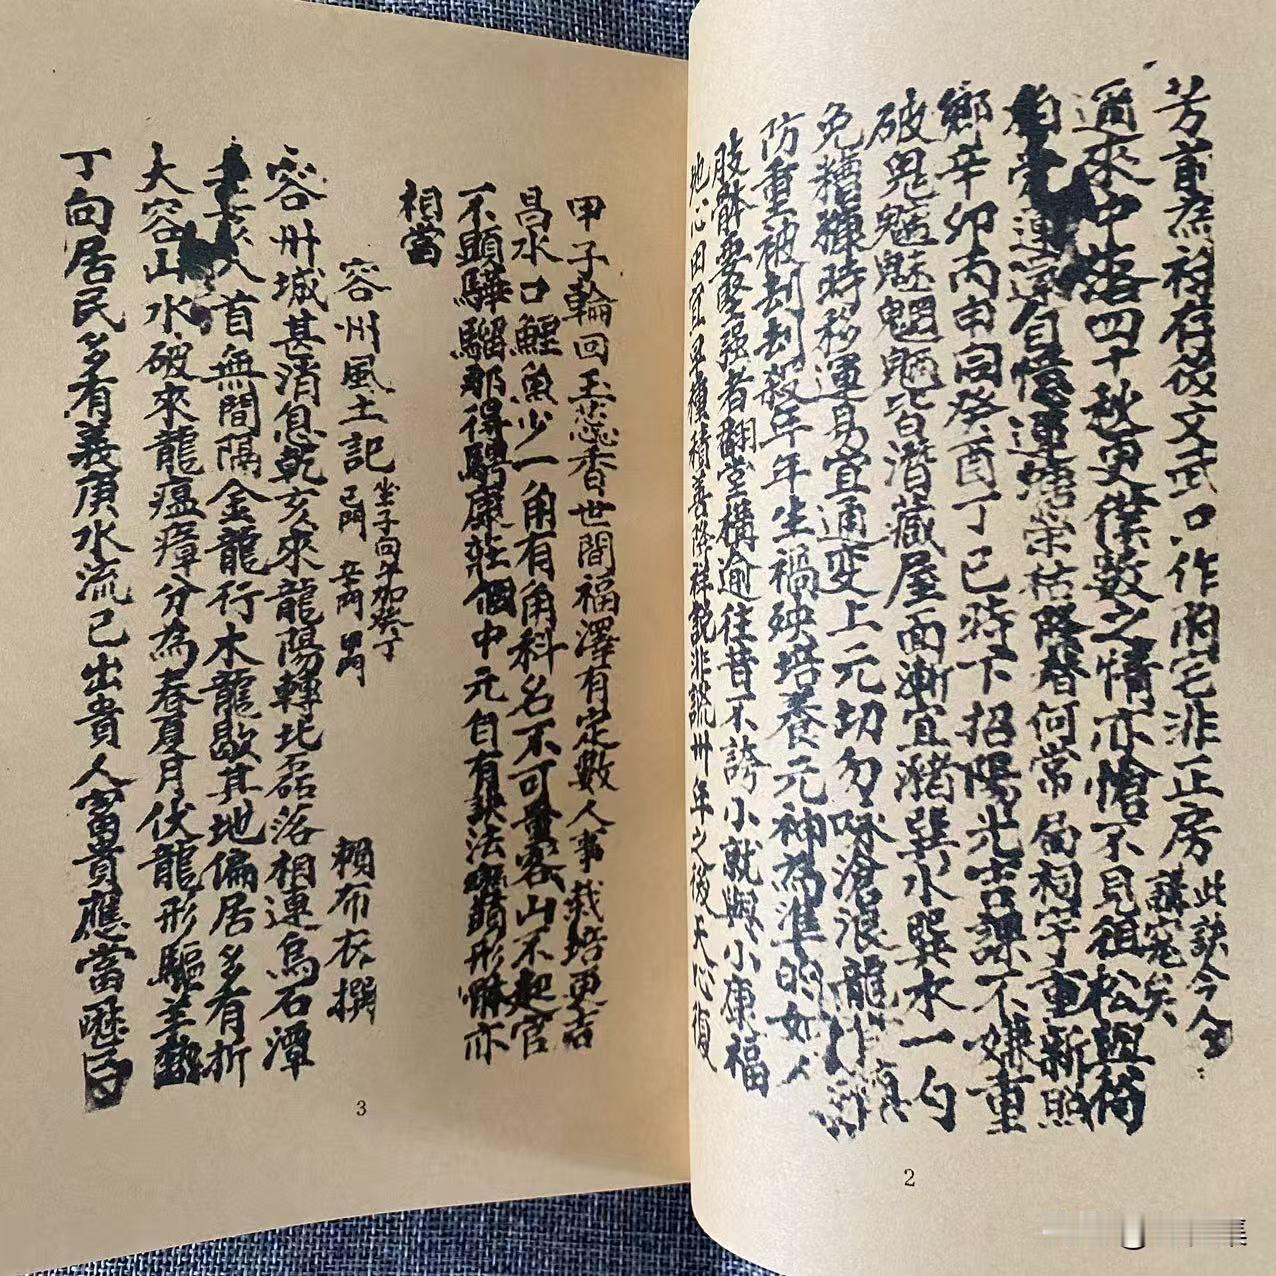 芳前為祿存後文武口作兩宅非正房
此訣今今
講寃矣
邇來中落四十秋更僕數之情亦愴不見祖松與荷
運自憶運塘榮枯降替何常局祠宇重新照
鄉辛卯丙申同癸酉丁巳時下招陽光吉課不嫌重
破鬼魑魅魍魎皆潛藏屋面漸宜瀦巽水巽水一勺
免糟糠時移運易宜通變上元切勿吠滄浪龍
防重被刦刦殺年年生禍殃培養元神為準的如人
肢解要堅强者翻堂構逾往昔不誇小就與小康福
地心田宜早種積善降祥說非謊卅年之後天心復
2
甲子輪回玉蕊香世間福澤有定數人事栽培更吉
昌水口鯉魚少一角有角科名不可量客山不起官
不顯驊騮那得騁康莊個中元自有訣法形亦
相當
容州風土記
坐子向午加癸丁
賴布衣撰
容州城甚消息乾亥來龍陽轉北磊落相連烏石潭
人首無間隔金龍行木龍歇其地偏居多有折
大容山水破來龍瘟瘴分為春夏月伏龍形驅羊勢
丁向居民多有義庚水流已出貴人富貴應當
3